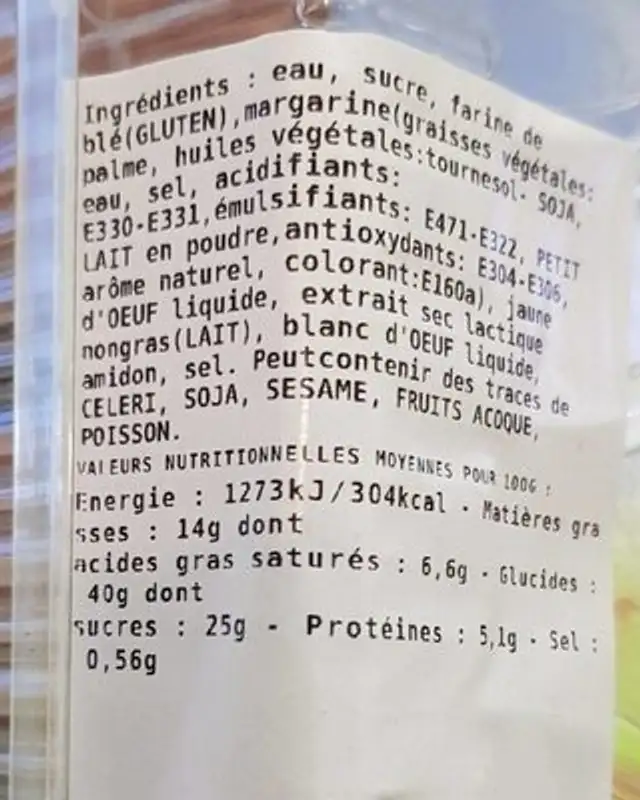 Ingrédients : eau, sucre, farine de
blé(GLUTEN),margarine(graisses végétales:
palme, huiles végétales:tournesol- SOJA,
eau, sel, acidifiants:
E330-E331,émulsifiants: E471-E322, PETIT
LAIT en poudre,antioxydants: E304-E306,
arôme naturel, colorant:E160a), jaune
d'OEUF liquide, extrait sec lactique
nongras(LAIT), blanc d'OEUF liquide,
amidon, sel. Peutcontenir des traces de
CELERI, SOJA, SESAME, FRUITS ACOQUE,
POISSON.
VALEURS NUTRITIONNELLES MOYENNES POUR 100G :
Energie : 1273kJ/304kcal - Matières gra
sses : 14g dont
acides gras saturés : 6,6g - Glucides :
40g dont
sucres : 25g - Protéines : 5,1g - Sel :
0,56g